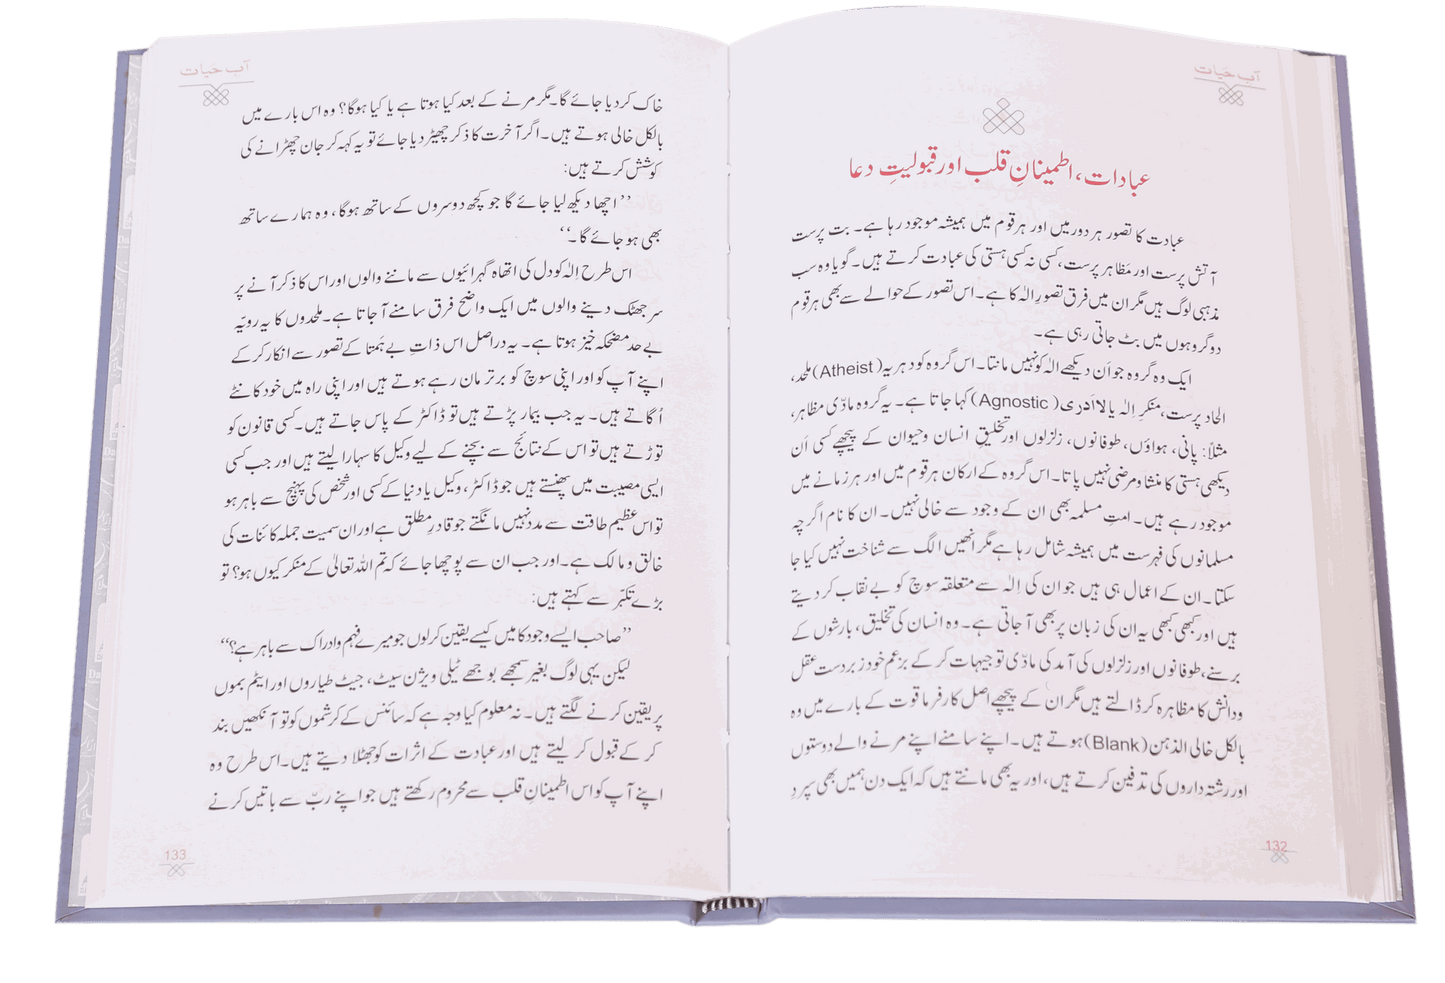 آبِ حیات
عبادات، اطمینانِ قلب اور قبولیتِ دعا
عبادت کا تصور ہر دور میں اور ہر قوم میں ہمیشہ موجود رہا ہے۔ بت پرست
آتش پرست اور مظاہر پرست، کسی نہ کسی ہستی کی عبادت کرتے ہیں۔ گویا وہ سب
مذہبی لوگ ہیں مگر ان میں فرق تصورِ الٰہ کا ہے۔ اس تصور کے حوالے سے بھی ہر قوم
دو گروہوں میں بٹ جاتی رہی ہے۔
ایک وہ گروہ جو اَن دیکھے الٰہ کو نہیں مانتا۔ اس گروہ کو دہریہ (Atheist) ملحد،
الحاد پرست، منکرِ اِلٰہ یا لا اَدری (Agnostic) کہا جاتا ہے۔ یہ گروہ مادّی مظاہر،
مثلاً: پانی، ہواؤں، طوفانوں، زلزلوں اور تخلیقِ انسان وحیوان کے پیچھے کسی اَن
دیکھی ہستی کا منشا و مرضی نہیں پاتا۔ اس گروہ کے ارکان ہر قوم میں اور ہر زمانے میں
موجود رہے ہیں۔ امتِ مسلمہ بھی ان کے وجود سے خالی نہیں۔ ان کا نام اگرچہ
مسلمانوں کی فہرست میں ہمیشہ شامل رہا ہے مگر انھیں الگ سے شناخت نہیں کیا جا
سکتا۔ ان کے اعمال ہی ہیں جو ان کی اِلٰہ سے متعلقہ سوچ کو بے نقاب کر دیتے
ہیں اور کبھی کبھی یہ ان کی زبان پر بھی آ جاتی ہے۔ وہ انسان کی تخلیق، بارشوں کے
برسنے، طوفانوں اور زلزلوں کی آمد کی مادّی توجیہات کر کے بزعمِ خود زبردست عقل
ودانش کا مظاہرہ کر ڈالتے ہیں مگر ان کے پیچھے اصل کارفرما قوت کے بارے میں وہ
بالکل خالی الذہن (Blank) ہوتے ہیں۔ اپنے سامنے اپنے مرنے والے دوستوں
اور رشتہ داروں کی تدفین کرتے ہیں، اور یہ بھی مانتے ہیں کہ ایک دن ہمیں بھی سپردِ
132
آبِ حیات
خاک کر دیا جائے گا۔ مگر مرنے کے بعد کیا ہوتا ہے یا کیا ہوگا؟ وہ اس بارے میں
بالکل خالی ہوتے ہیں۔ اگر آخرت کا ذکر چھیڑ دیا جائے تو یہ کہہ کر جان چھڑانے کی
کوشش کرتے ہیں:
’’اچھا دیکھ لیا جائے گا جو کچھ دوسروں کے ساتھ ہوگا، وہ ہمارے ساتھ
بھی ہو جائے گا۔‘‘
اس طرح اِلٰہ کو دل کی اتھاہ گہرائیوں سے ماننے والوں اور اس کا ذکر آنے پر
سر جھٹک دینے والوں میں ایک واضح فرق سامنے آ جاتا ہے۔ ملحدوں کا یہ رویّہ
بے حد مضحکہ خیز ہوتا ہے۔ یہ دراصل اس ذاتِ بے ہَمتا کے تصور سے انکار کر کے
اپنے آپ کو اور اپنی سوچ کو برتر مان رہے ہوتے ہیں اور اپنی راہ میں خود کانٹے
اُگاتے ہیں۔ یہ جب بیمار پڑتے ہیں تو ڈاکٹر کے پاس جاتے ہیں۔ کسی قانون کو
توڑتے ہیں تو اس کے نتائج سے بچنے کے لیے وکیل کا سہارا لیتے ہیں اور جب کسی
ایسی مصیبت میں پھنستے ہیں جو ڈاکٹر، وکیل یا دنیا کے کسی اور شخص کی پہنچ سے باہر ہو
تو اس عظیم طاقت سے مدد نہیں مانگتے جو قادرِ مطلق ہے اور ان سمیت جملہ کائنات کی
خالق و مالک ہے۔ اور جب ان سے پوچھا جائے کہ تم اللہ تعالیٰ کے منکر کیوں ہو؟ تو
بڑے تکبّر سے کہتے ہیں:
’’صاحب ایسے وجود کا میں کیسے یقین کرلوں جو میرے فہم و ادراک سے باہر ہے؟‘‘
لیکن یہی لوگ بغیر سمجھے بوجھے ٹیلی ویژن سیٹ، جیٹ طیاروں اور ایٹم بموں
پر یقین کرنے لگتے ہیں۔ نہ معلوم کیا وجہ ہے کہ سائنس کے کرشموں کو تو آنکھیں بند
کر کے قبول کر لیتے ہیں اور عبادت کے اثرات کو جھٹلا دیتے ہیں۔ اس طرح وہ
اپنے آپ کو اس اطمینانِ قلب سے محروم رکھتے ہیں جو اپنے ربّ سے باتیں کرنے
133